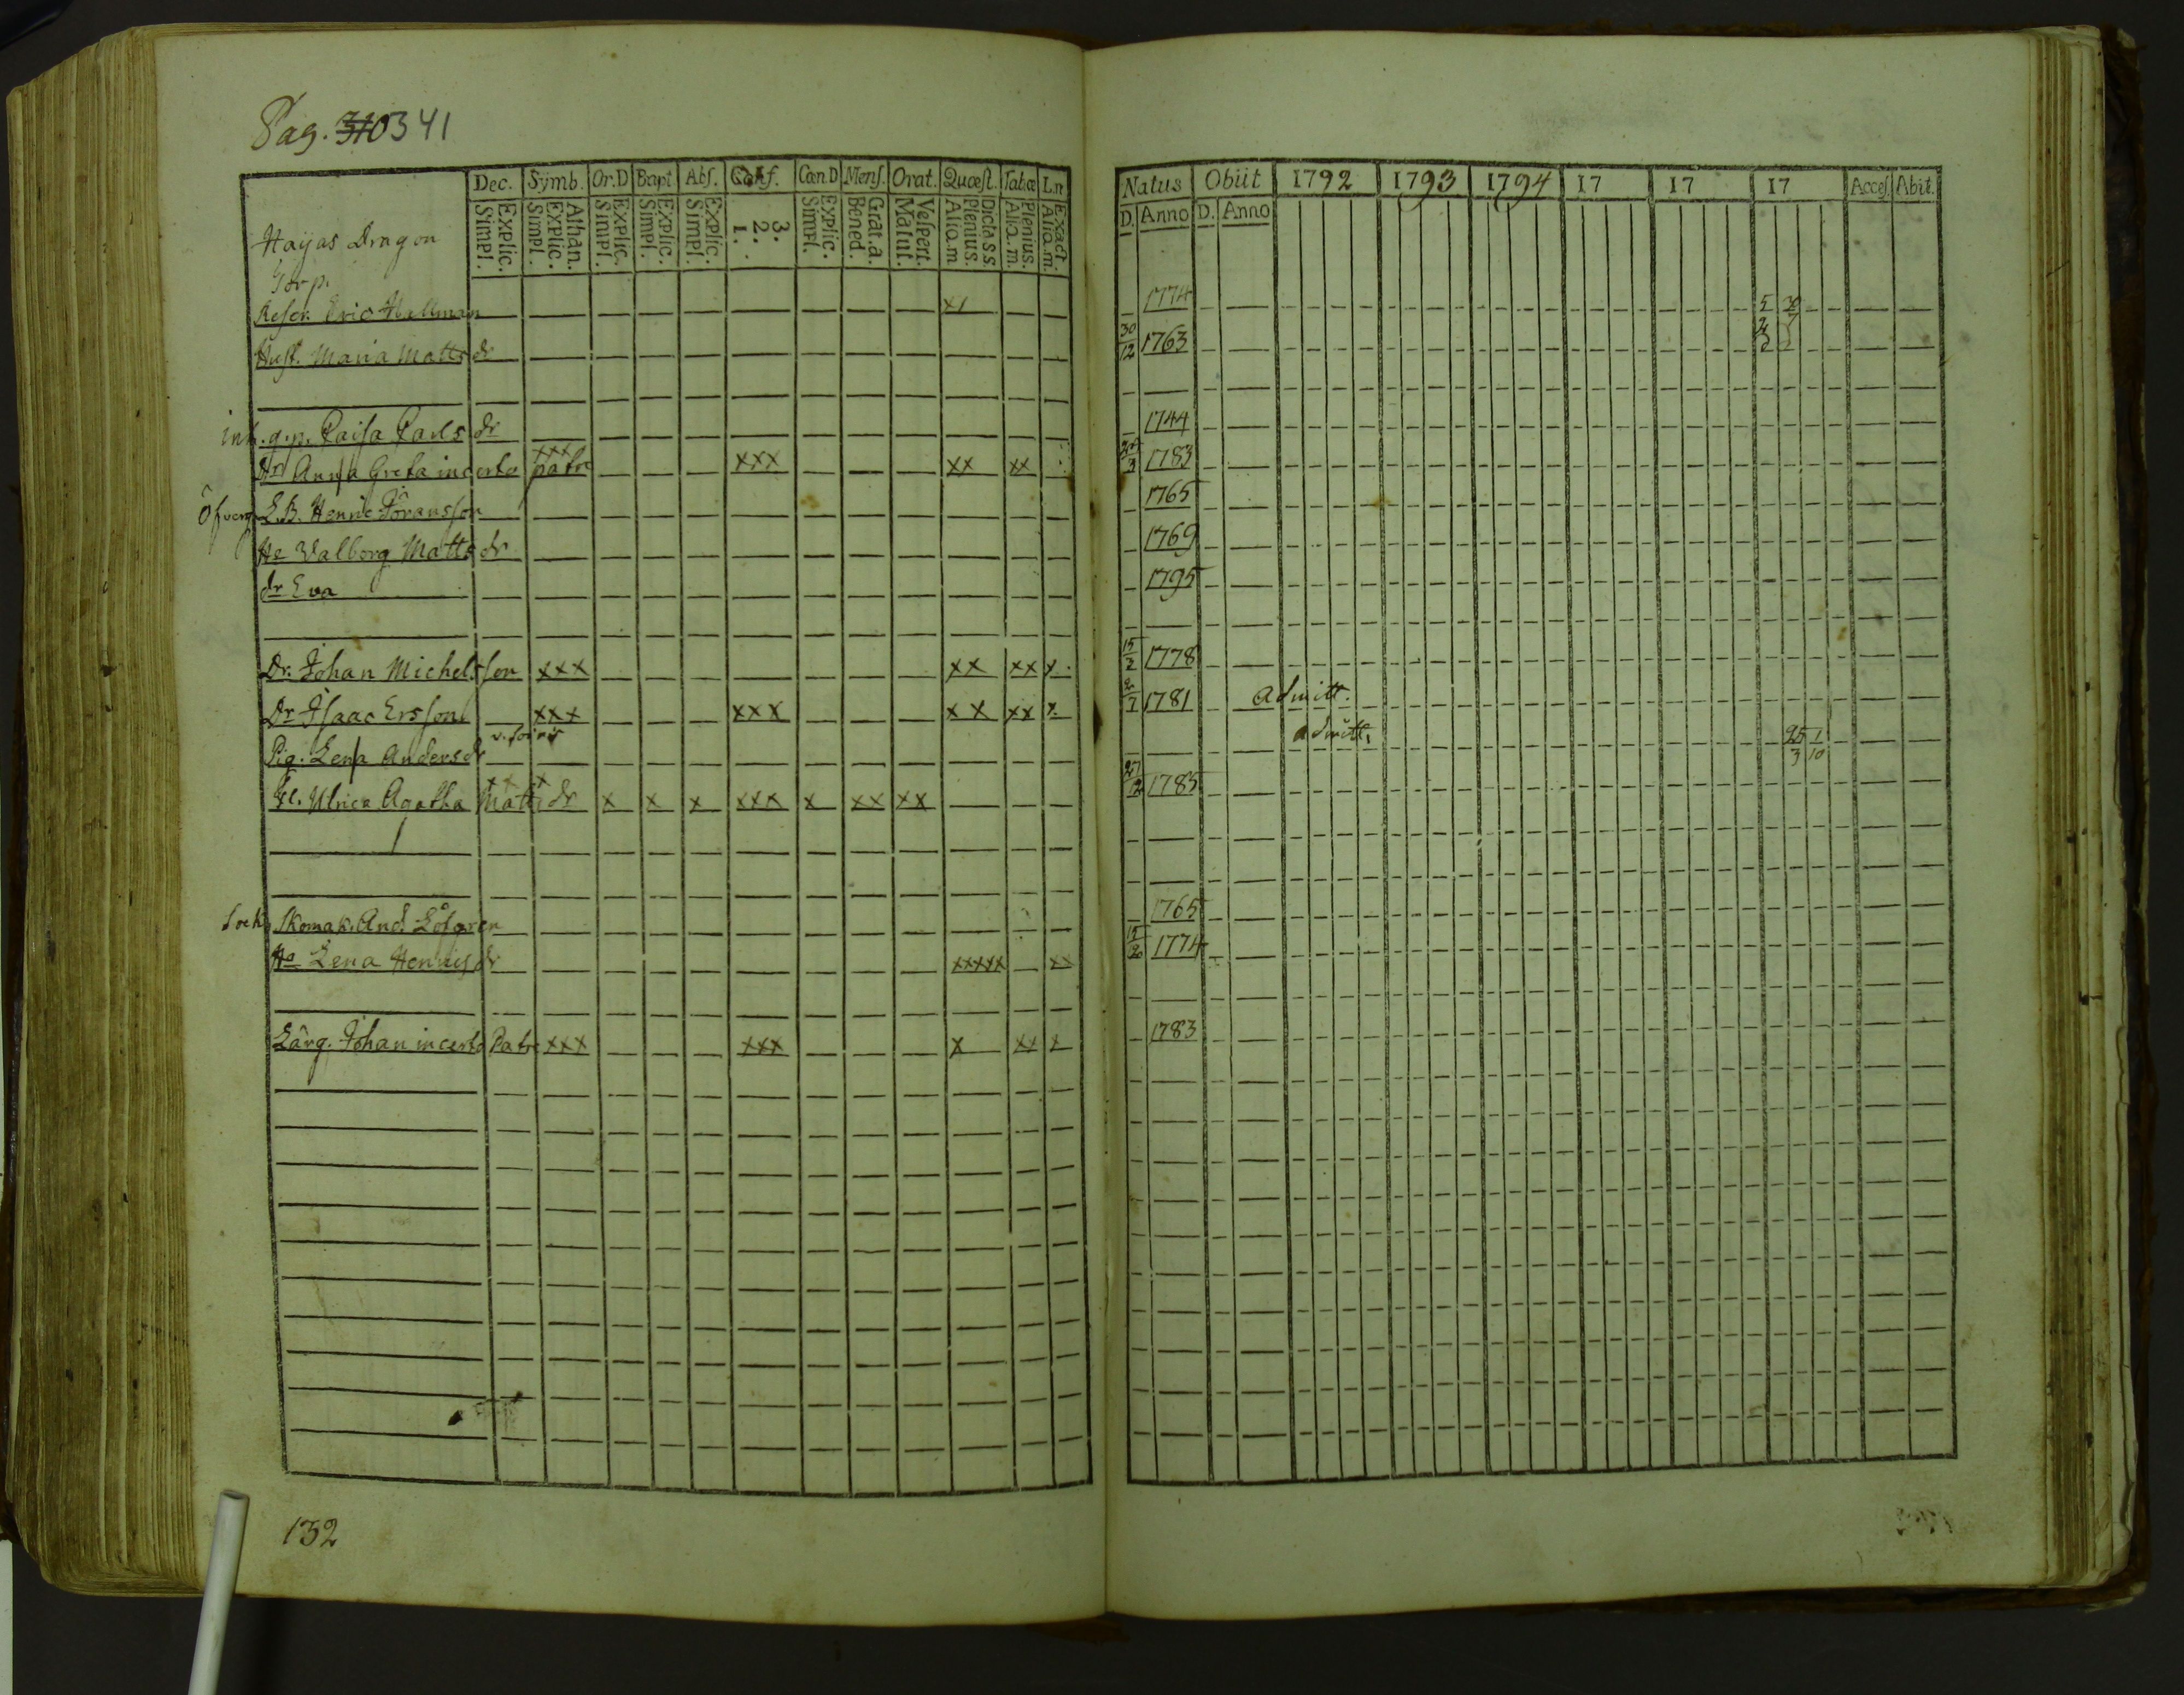 Pag. 310 341
Dec. Symb. Or.D Bapt. Abs. Conf. Cœn.D Mens. Orat. Quæst. Tabœ L.n
Simpl. Explic. Simpl. Explic. Athan. Simpl. Explic. Simpl. Explic. Simpl. Explic. 1. 2. 3. Simpl. Explic. Bened. Grat. a. Matut. Vespert. Alia.m. Plenius. Dicta S S. Alia.m. Plenius. Alia.m. Exact.
Natus Obiit 1792 1793 1794 17 17 17 Access. Abit.
D. Anno D. Anno
Hayas Dragon
Torp.
Reser. Eric Hellman x/ 1774 5 30
Hust. Maria Matts dr 30/12 1763
inh. g.p. Caisa Carls dr 1744
Dr Anna Greta incerto patre xxx xxx xx xx 1783
L.B. Henric Jöransson 1765
He Walborg Matts dr 1769
dr Eva 1795
Dr. Johan Michelsson xxx xx xx x. 15/2 1778
Dr Isaac Ersson xxx xxx xx xx x. 1781 admitt.
Pig. Lena Anders dr admitt. 25/3 1/10
Fl. Ulrica Agatha Matts dr x x x xxx x xx xx 27/12 1785
Sock. Skomak. And. Löfgren 1765
Ha Lena Henrics dr xxxxx xx 1774
Lärg. Johan incerto Patre xxx xxx x xx x 1783
132